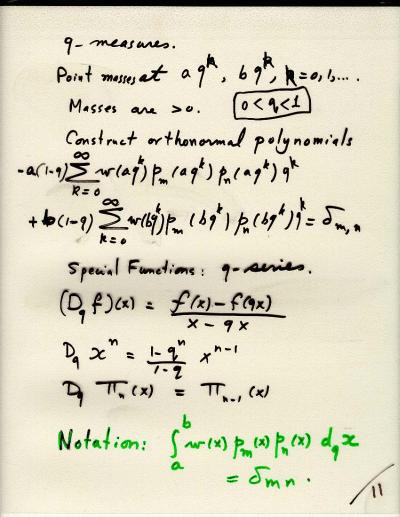 q-measures.
Point masses at a q^k, b q^k, k=0,1,....
Masses are >0. 0<q<1
Construct orthonormal polynomials
-a(1-q) ∑_{k=0}^{∞} w(aq^k) p_m(aq^k) p_n(aq^k) q^k
+b(1-q) ∑_{k=0}^{∞} w(bq^k) p_m(bq^k) p_n(bq^k) q^k = δ_{m,n}
Special Functions: q-series.
(D_q f)(x) = (f(x) - f(qx))/(x - qx)
D_q x^n = (1-q^n)/(1-q) x^{n-1}
D_q Π_n(x) = Π_{n-1}(x)
Notation: ∫_a^b w(x) p_m(x) p_n(x) d_q x
= δ_{mn}.
11